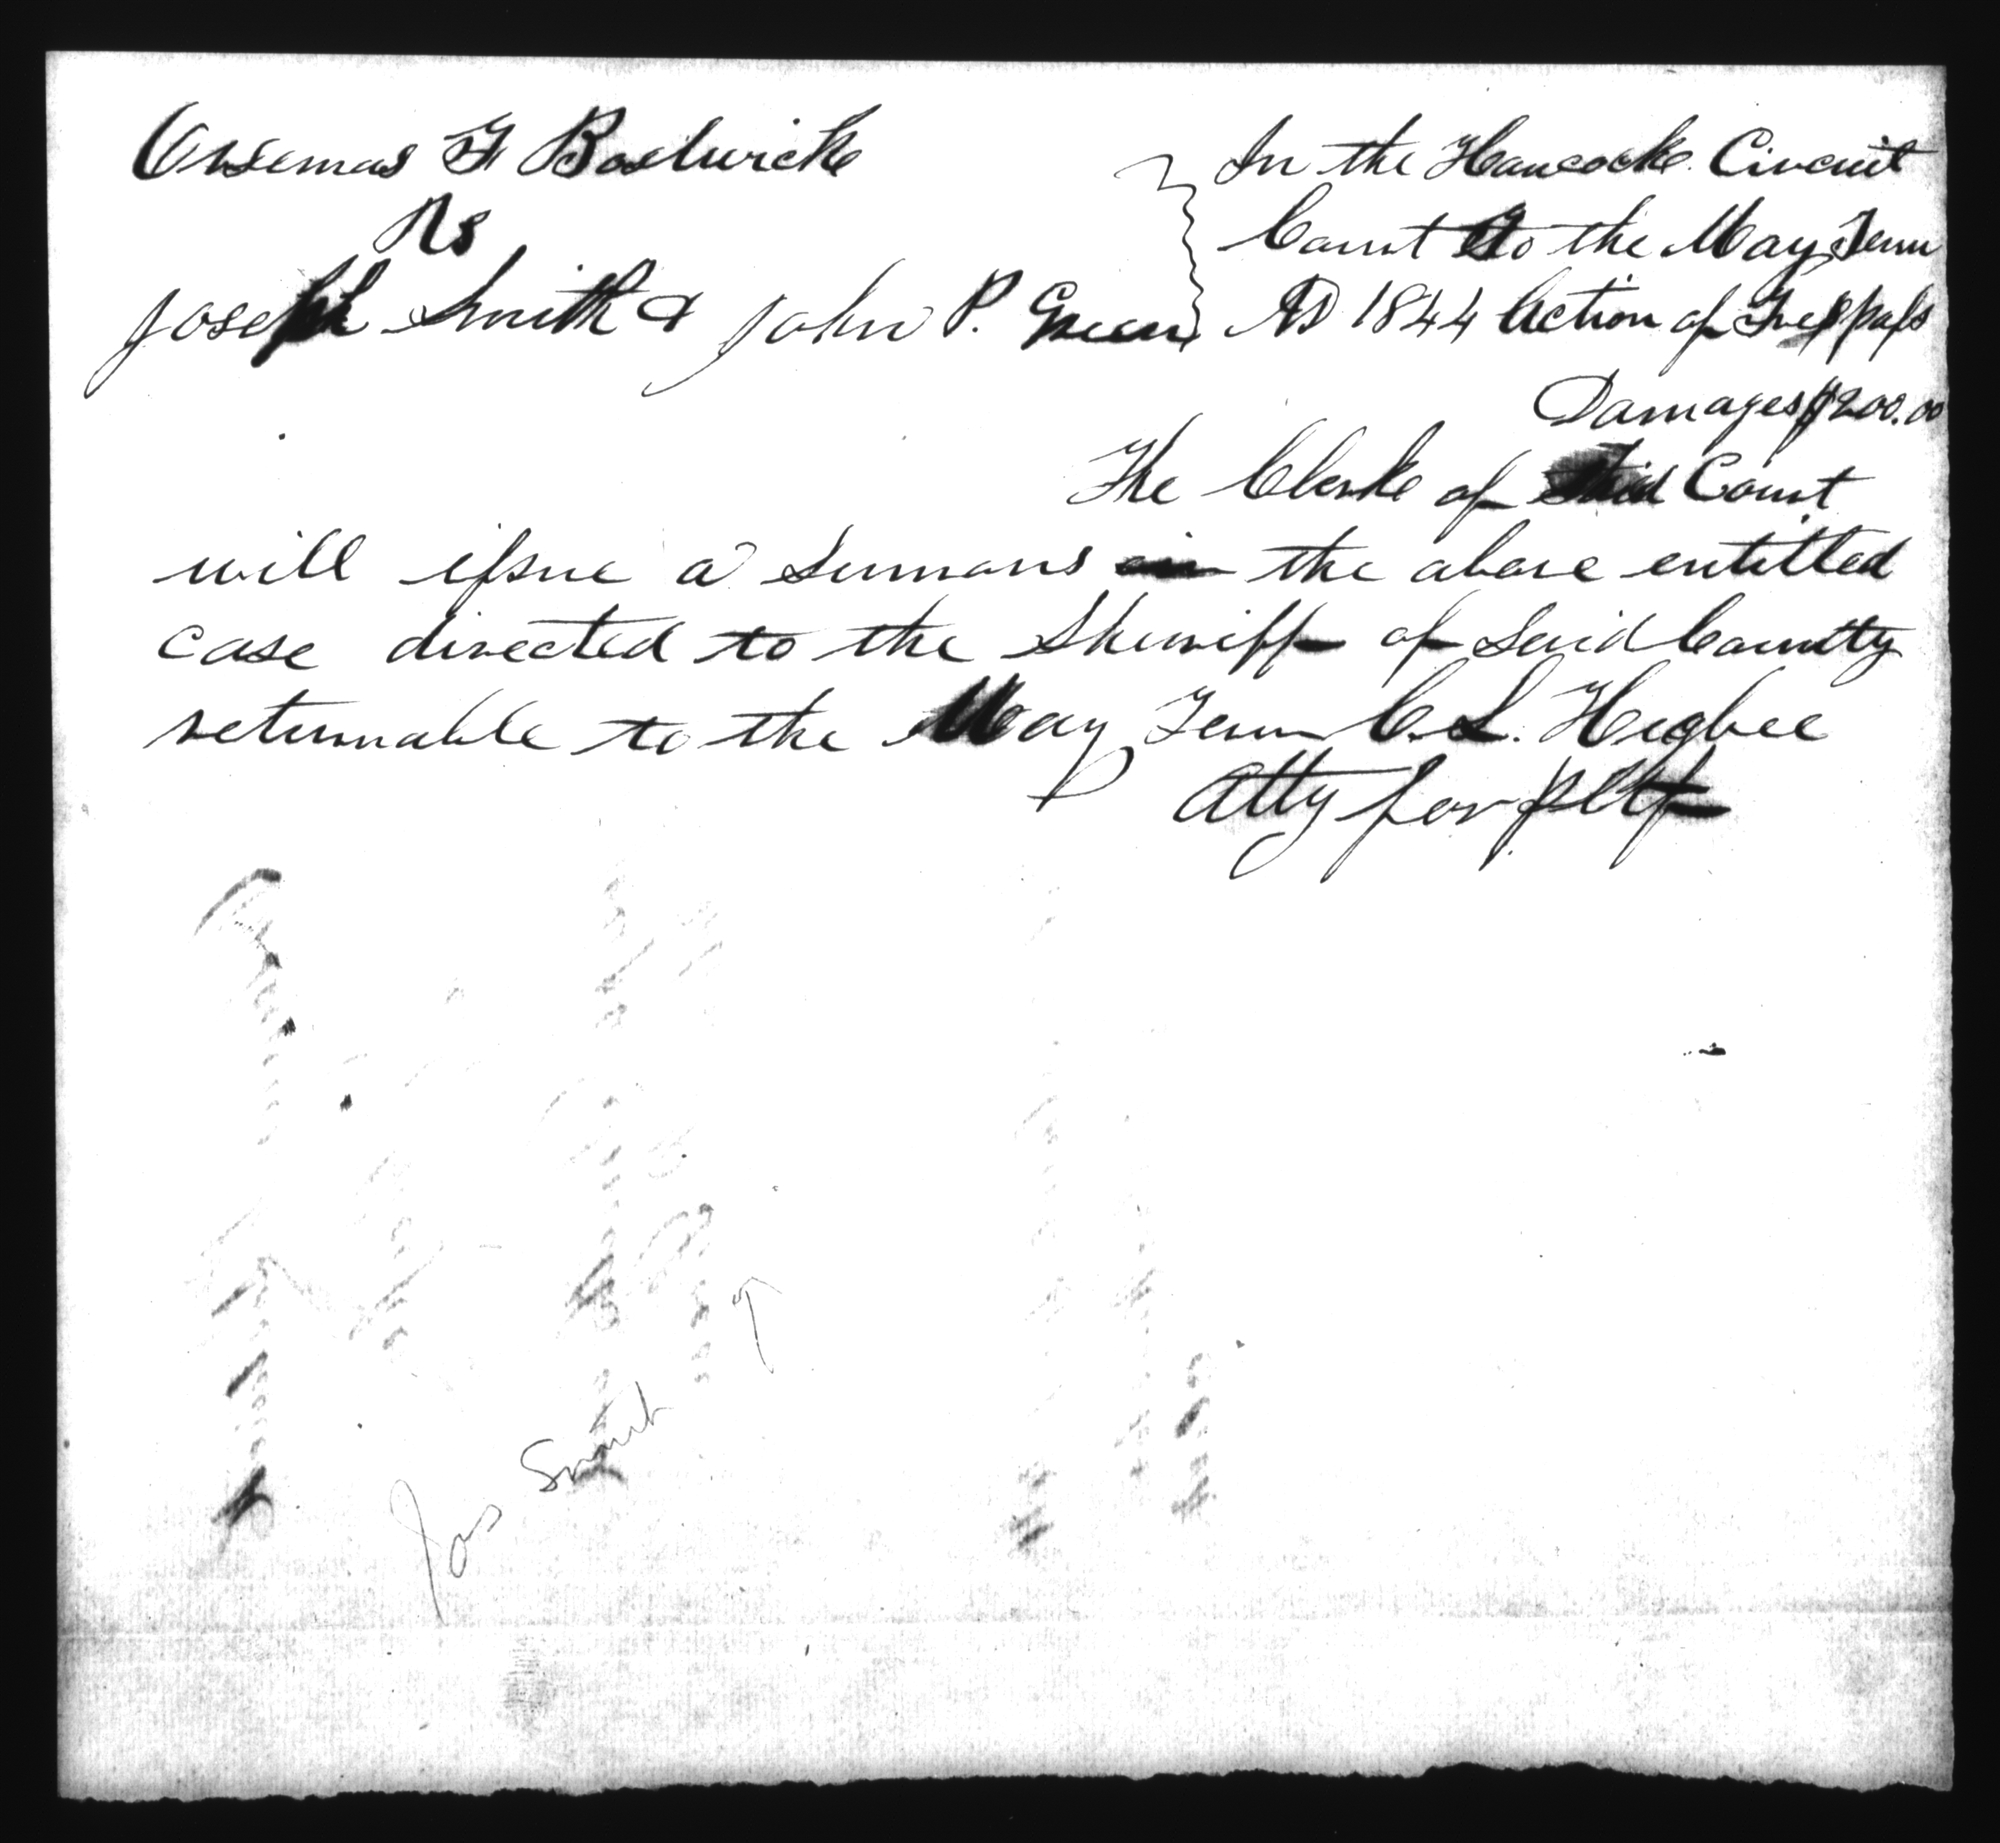 Orsemas F Bostwick
Vs
Joseph Smith & John P. Green
In the Hancock Circuit
Court to the May Term
AD 1844 Action of Trespass
Damages $200.00
The Clerk of said Court
will issue a Sumans in the above entitled
case directed to the Sheriff of said County
returnable to the May Term C. L. Higbee
Atty for pltf
Jos Smith